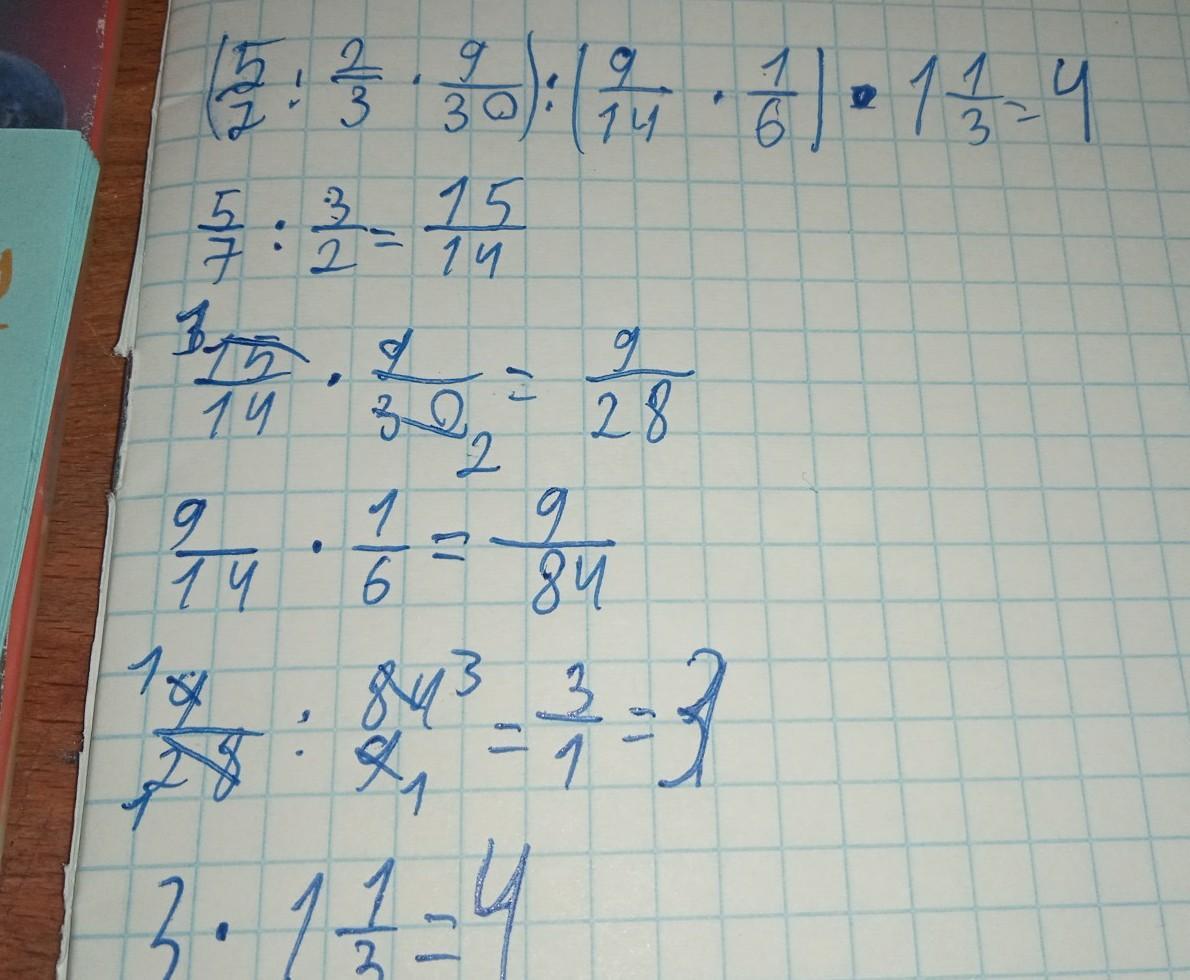 (5/7 : 2/3 · 9/30) : (9/14 · 1/6) · 1 1/3 = 4
5/7 : 3/2 = 15/14
1 15/14 · 9/30 2 = 9/28
9/14 · 1/6 = 9/84
1 9/28 1 : 84 3/9 1 = 3/1 = 3
3 · 1 1/3 = 4